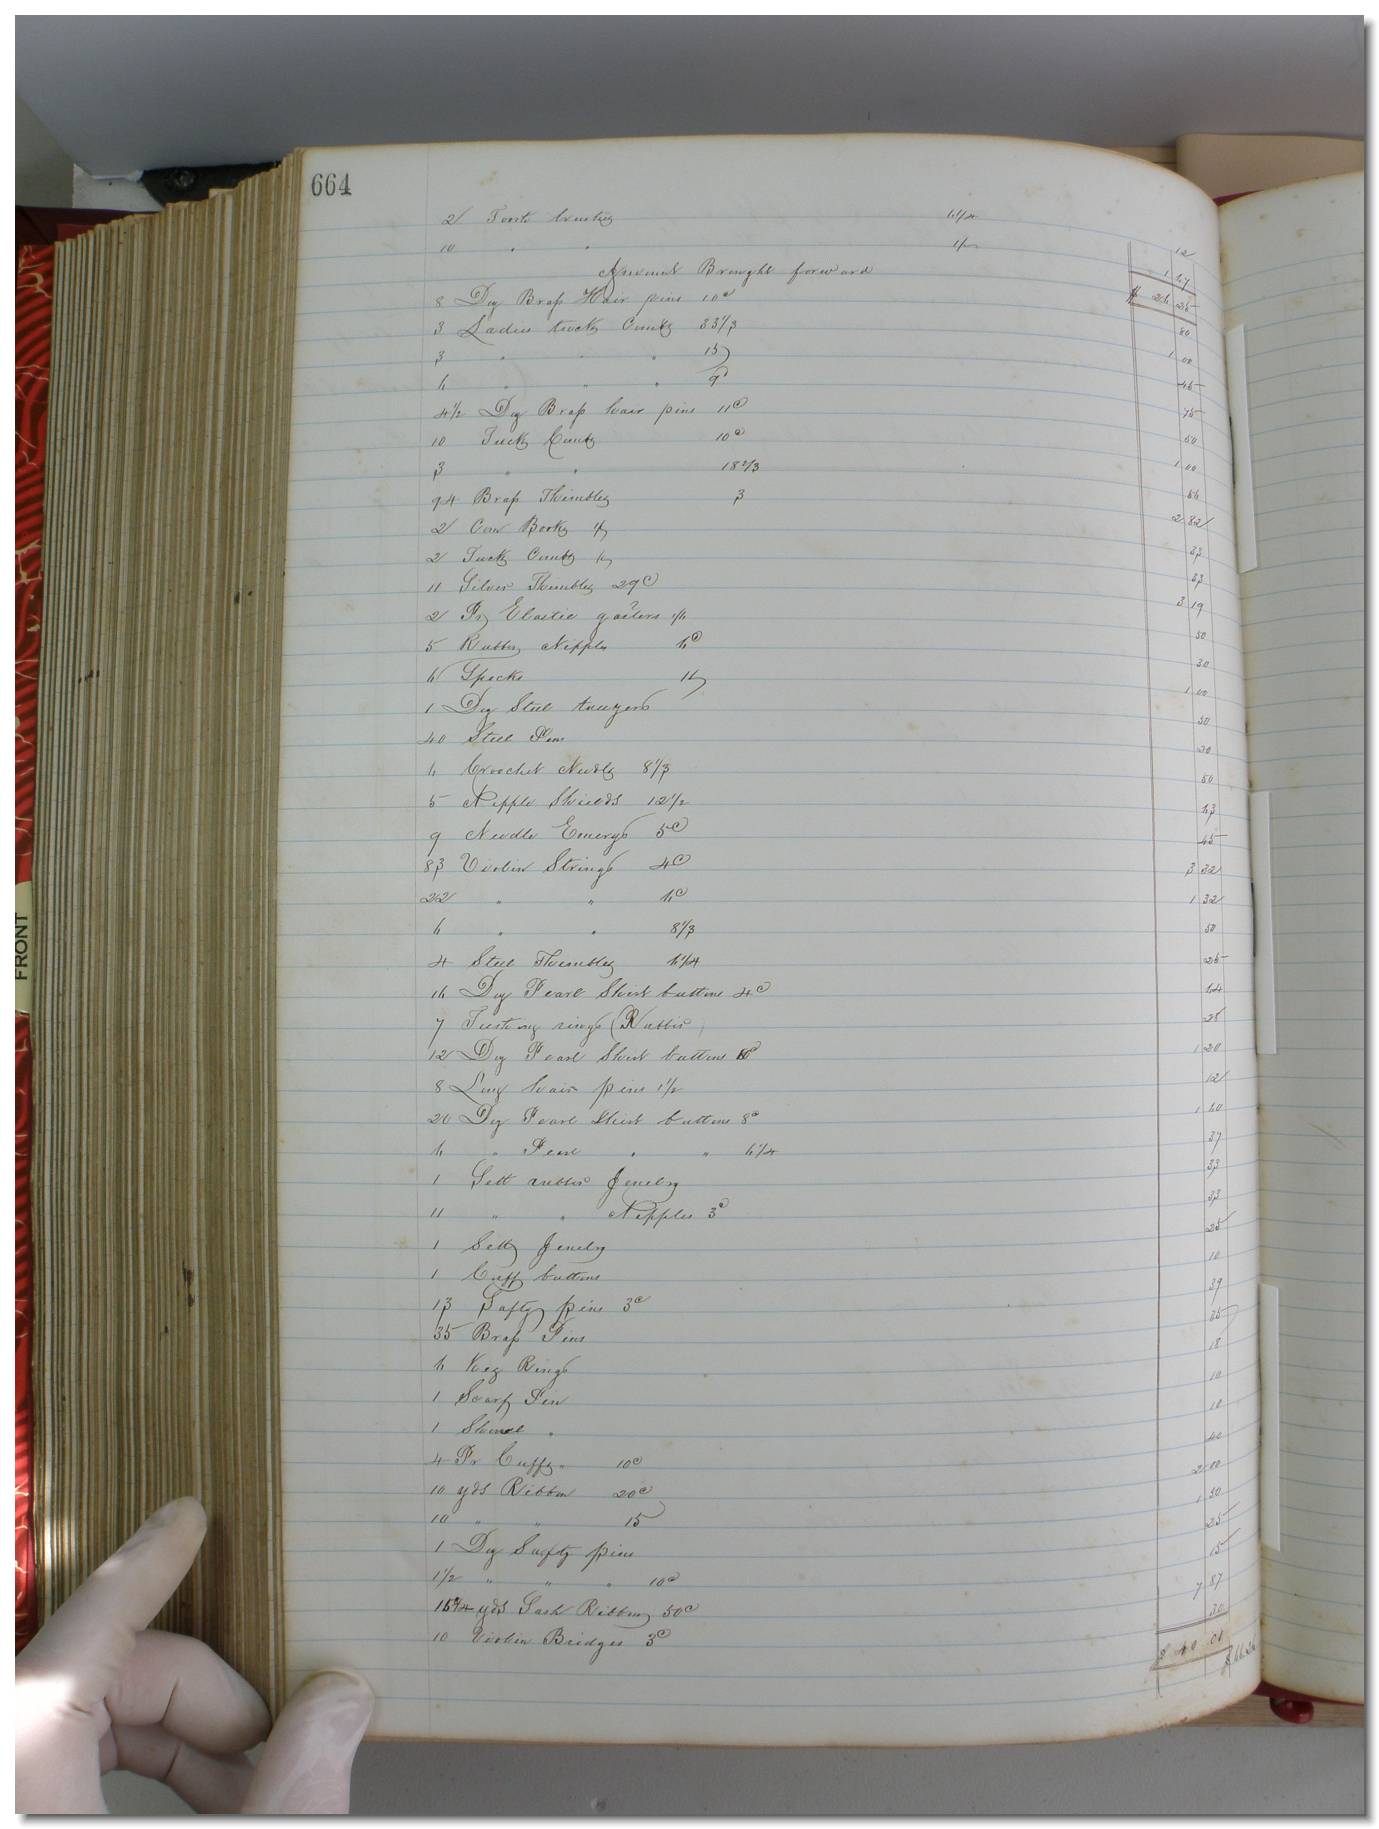 664
2 Tooth brushes 6 1/4 12
10 " " 1/6 1 67
Amount Brought forward $ 26 25
8 Doz Brass Hair pins 10c 80
3 Ladies tuck Combs 33 1/3 1 00
3 " " " 15 45
6 " " " 75
4 1/2 Doz Brass hair pins 11c 50
10 Tuck Combs 10c 1 00
3 " " 18 2/3 56
94 Brass Thimbles 3 2 82
2 Books 33
2 Tuck Combs 33
11 Silver Thimbles 29c 3 19
2 Pr Elastic gaiters 50
5 Rubber Nipples 6c 30
6 Specks 1 00
1 Doz Steel tweezers 50
40 Steel Pens 20
6 Crochet Needles 8 1/3 50
5 Nipple Shields 12 1/2 63
9 Needle Emerys 5c 45
83 Violin Strings 4c 3 32
22 " " 6c 1 32
6 " " 8 1/3 50
4 Steel Thimbles 6 1/4 25
16 Doz Pearl Shirt buttons 4c 64
7 rings (Rubber) 28
12 Doz Pearl Shirt buttons 10c 1 20
8 Long hair pins 1 1/2 12
20 Doz Pearl Shirt buttons 8c 1 60
6 " Pearl " " 6 1/4 37
1 Sett rubber Jewelry 33
11 " " Nipples 3c 33
1 Setts Jewelry 25
1 Cuff buttons 10
13 Safty pins 3c 39
35 Brass Pins 35
6 Key Rings 18
1 Scarf Pin 10
1 Shawl " 10
4 Pr Cuffs " 10c 40
10 yds Ribbon 20c 2 00
10 " " 15 1 50
1 Doz Safty pins 25
1 1/2 " " " 10c 15
15 3/4 yds Sash Ribbon 50c 7 87
10 Violin Bridges 3c 30
$ 40 01
$ 66.26
FRONT